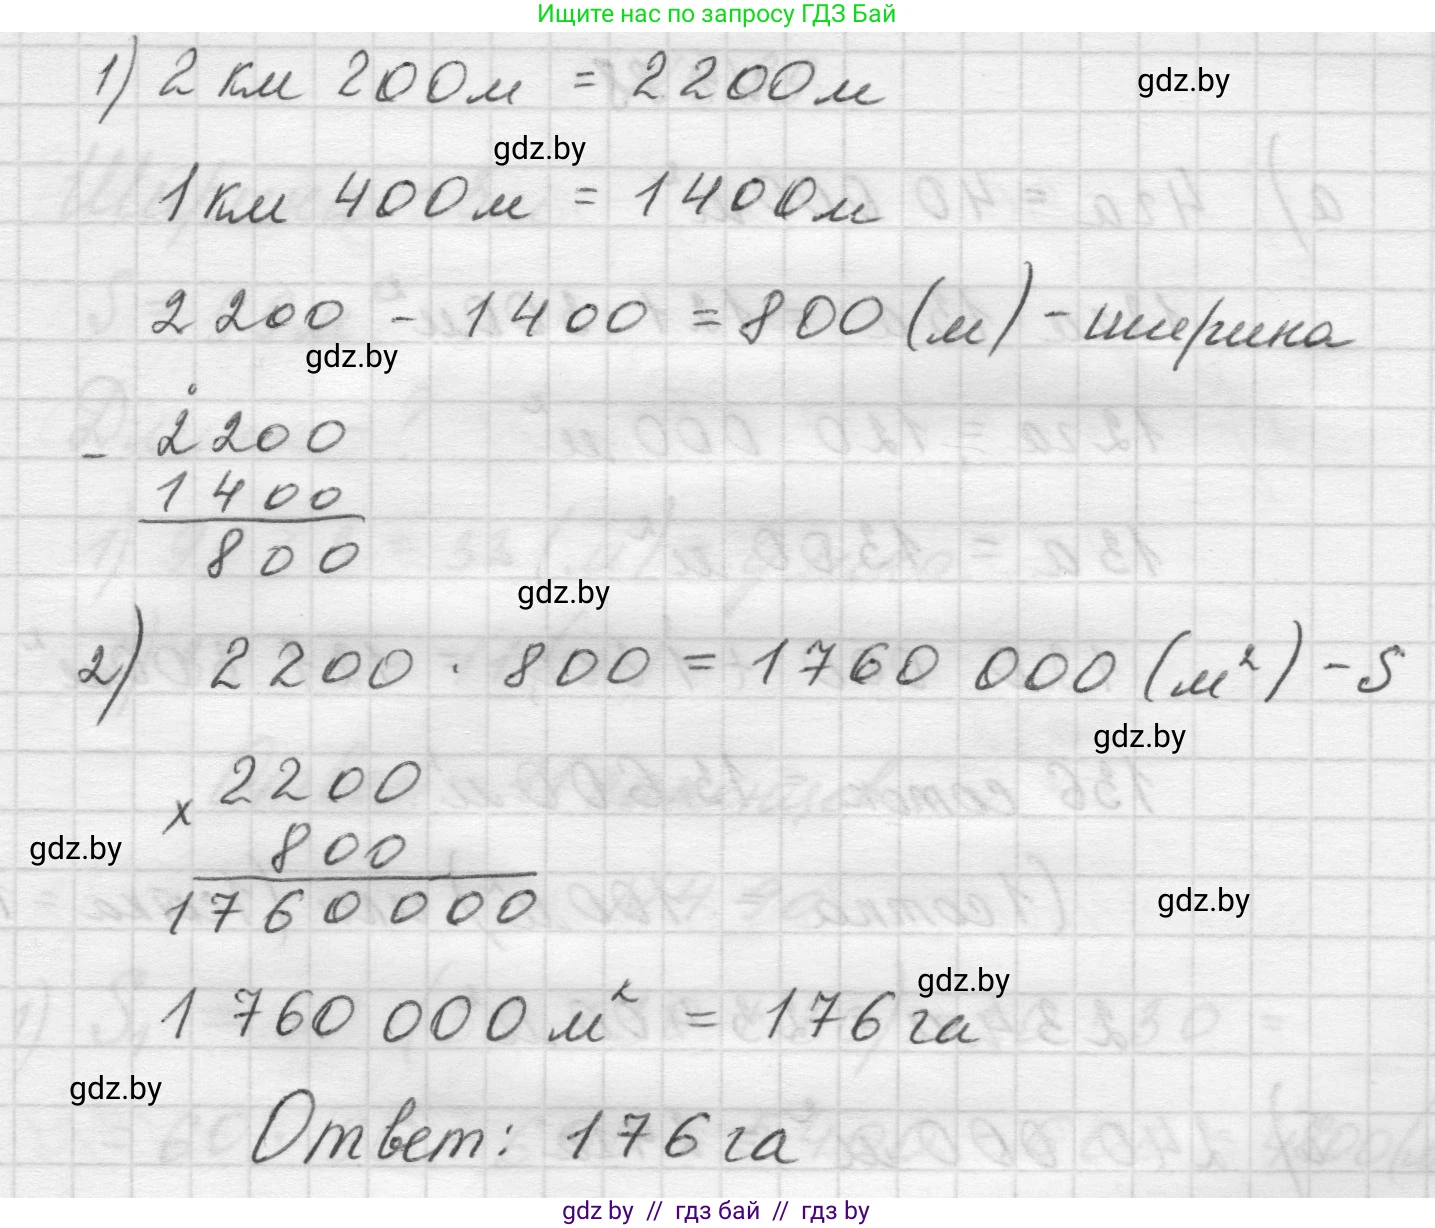 Ищите нас по запросу ГДЗ Бай
1) 2 км 200м = 2200м
gdz.by
gdz.by
1км 400м = 1400м
2200 - 1400 = 800 (м) - ширина
gdz.by
2200
-
1400
800
gdz.by
2) 2200 · 800 = 1760 000 (м²) - S
gdz.by
2200
x
800
gdz.by
1760000
gdz.by
1 760 000 м² = 176 га
gdz.by
gdz.by
Ответ: 176 га
gdz by // гдз бай // гдз by